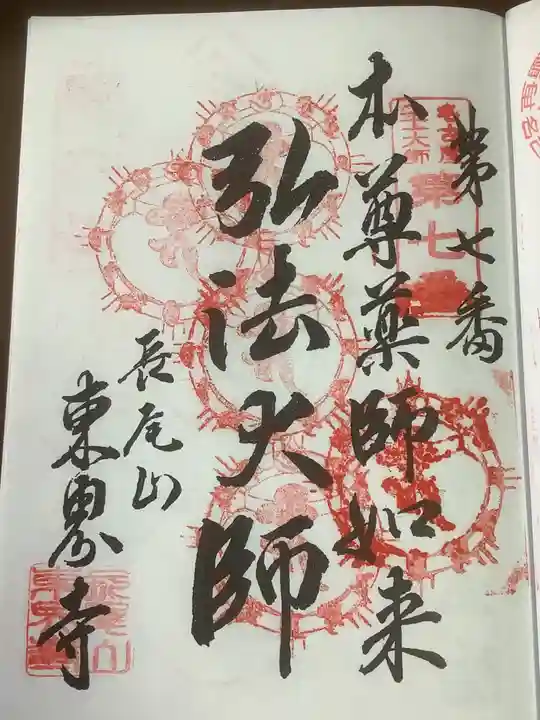 第七番
第七番
本尊薬師如来
弘法大師
長尾山
東界寺